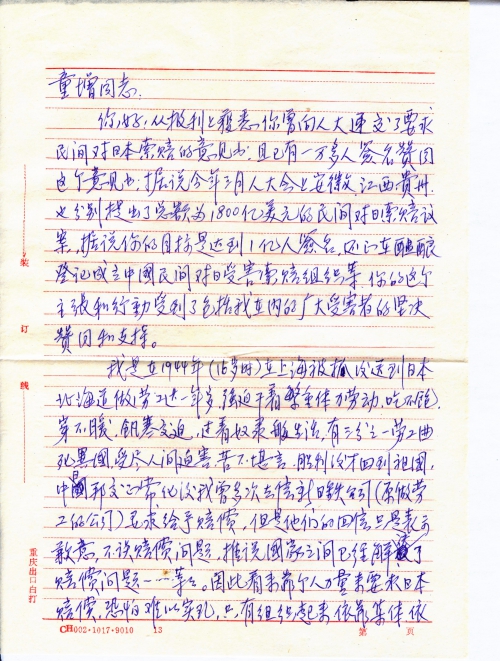 童增同志:
你好,从报刊上获悉你曾向人大递交了要求
民间对日本索赔的意见书,且已有一万多人签名赞同
这个意见书,据说今年三月人大会上安徽,江西贵州.
也分别提出了总额为1800亿美元的民间对日索赔议
案,据说你的目标是达到1亿人签名,还正在酝酿
登记成立中國民间对日受害索赔组织等.你的这个
主张和行动受到了包括我在内的广大受害者的坚决
赞同和支持。
我是在1944年(16岁时)在上海被抓
到日本
北海道做劳工达一年多,强迫干着繁重体力劳动,吃不饱,
穿不暖,饥寒交迫,过着奴隶般生活,有三分之一劳工曲
死異國,受尽人间迫害,苦不堪言.胜利后才回到祖国,
中日邦交正常化后我曾多次去信
日铁公司(原做劳
工的公司)要求给予赔偿,但是他们的回信只是表示
歉意,不谈赔偿问题,推说國家之间已经解决了
赔偿问题——等等。因此看来靠个人力量来要求日本
赔偿,恐怕难以实现,只有组织起来依靠集体依
装
订
线
重庆出口白打
CH002·1017·9010 13
第 页